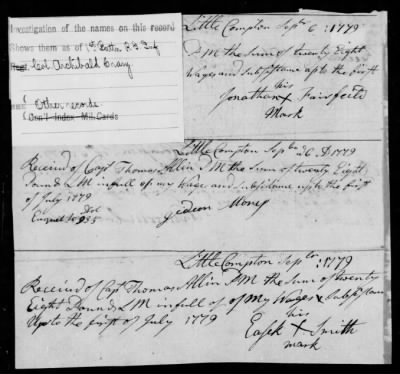 Investigation of the names on this record
Shows them as of 1st Battn R.I. Inf
Col Archibald Crary
Other records
Don't Index Mil. Cards
Little Compton Septr 6 : 1779
L M the Sum of twenty Eight
Wages and Subsistance up to the first
his
Jonathan X Fairfeild
Mark
Little Compton Septr 26 D 1779
Receivd of Capt Thomas Allin P M the Sum of twenty Eight
Pound L M in full of my Wage and Subsistance up to the first
of July 1779
Gideon Money
Little Compton Septr : 1779
Receivd of Capt Thomas Allin P M the Sum of twenty
Eight Pound L M in full of of My Wages & Subsistam
Up to the first of July 1779
his
Easek X Smith
mark